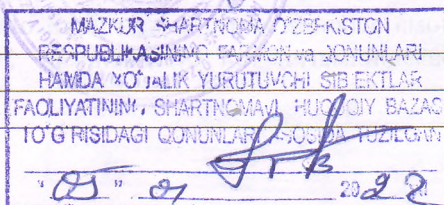 MAZKUR SHARTNOMA O'ZBEKISTON
RESPUBLIKASINING FARMON va QONUNLARI
HAMDA XO'JALIK YURUTUVCHI SUB'EKTLAR
FAOLIYATINING SHARTNOMAVIY HUQUQIY BAZAS
TO'G'RISIDAGI QONUNLAR ASOSIDA TUZILGAN
"05" 01 2022